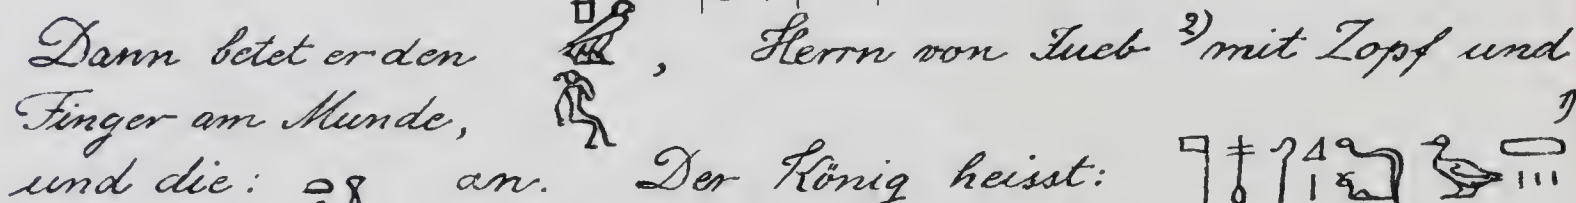 Dann betet er den , Herrn von Tueb ²⁾ mit Zopf und
Finger am Munde,
und die: an. Der König heisst: ¹⁾